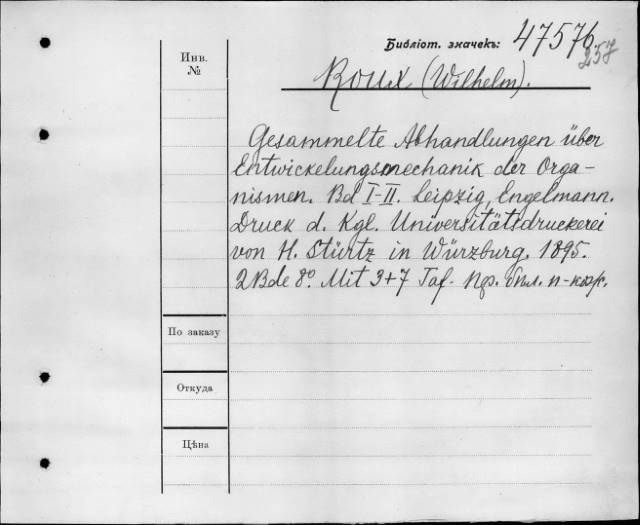 Библіот. значекъ: 47576.
257
Инв.
№
Roux (Wilhelm).
Gesammelte Abhandlungen über
Entwickelungsmechanik der Orga-
nismen. Bd I-II. Leipzig, Engelmann.
Druck d. Kgl. Universitätsdruckerei
von H. Stürtz in Würzburg. 1895.
2 Bde 8º. Mit 3+7 Taf.
По заказу
Откуда
Цѣна